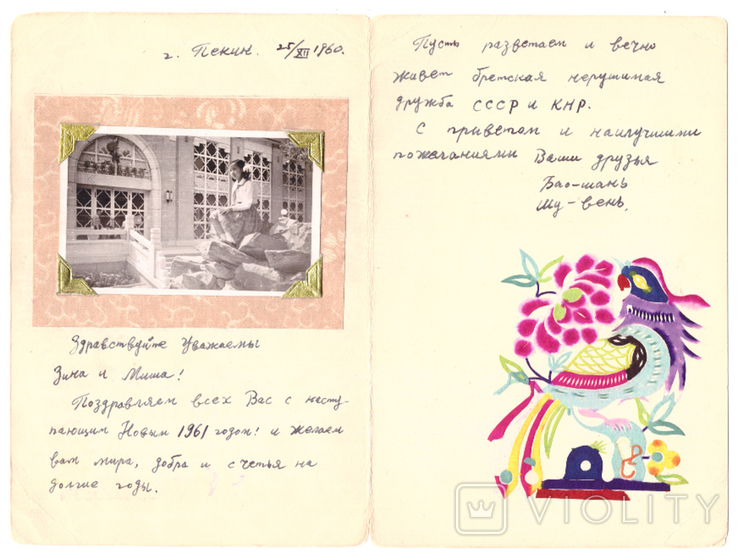 г. Пекин. 25/XII 1960.
Здравствуйте Уважаемы
Зина и Миша!
Поздравляем всех Вас с насту-
пающим Новым 1961 годом! и желаем
вам мира, добра и счетья на
долгие годы.
Пусть разветает и вечно
живет бретская нерушимая
дружба СССР и КНР.
С приветом и наилучшими
пожеланиями Ваши друзья
Бао-шань
Шу-вень.
VIOLITY